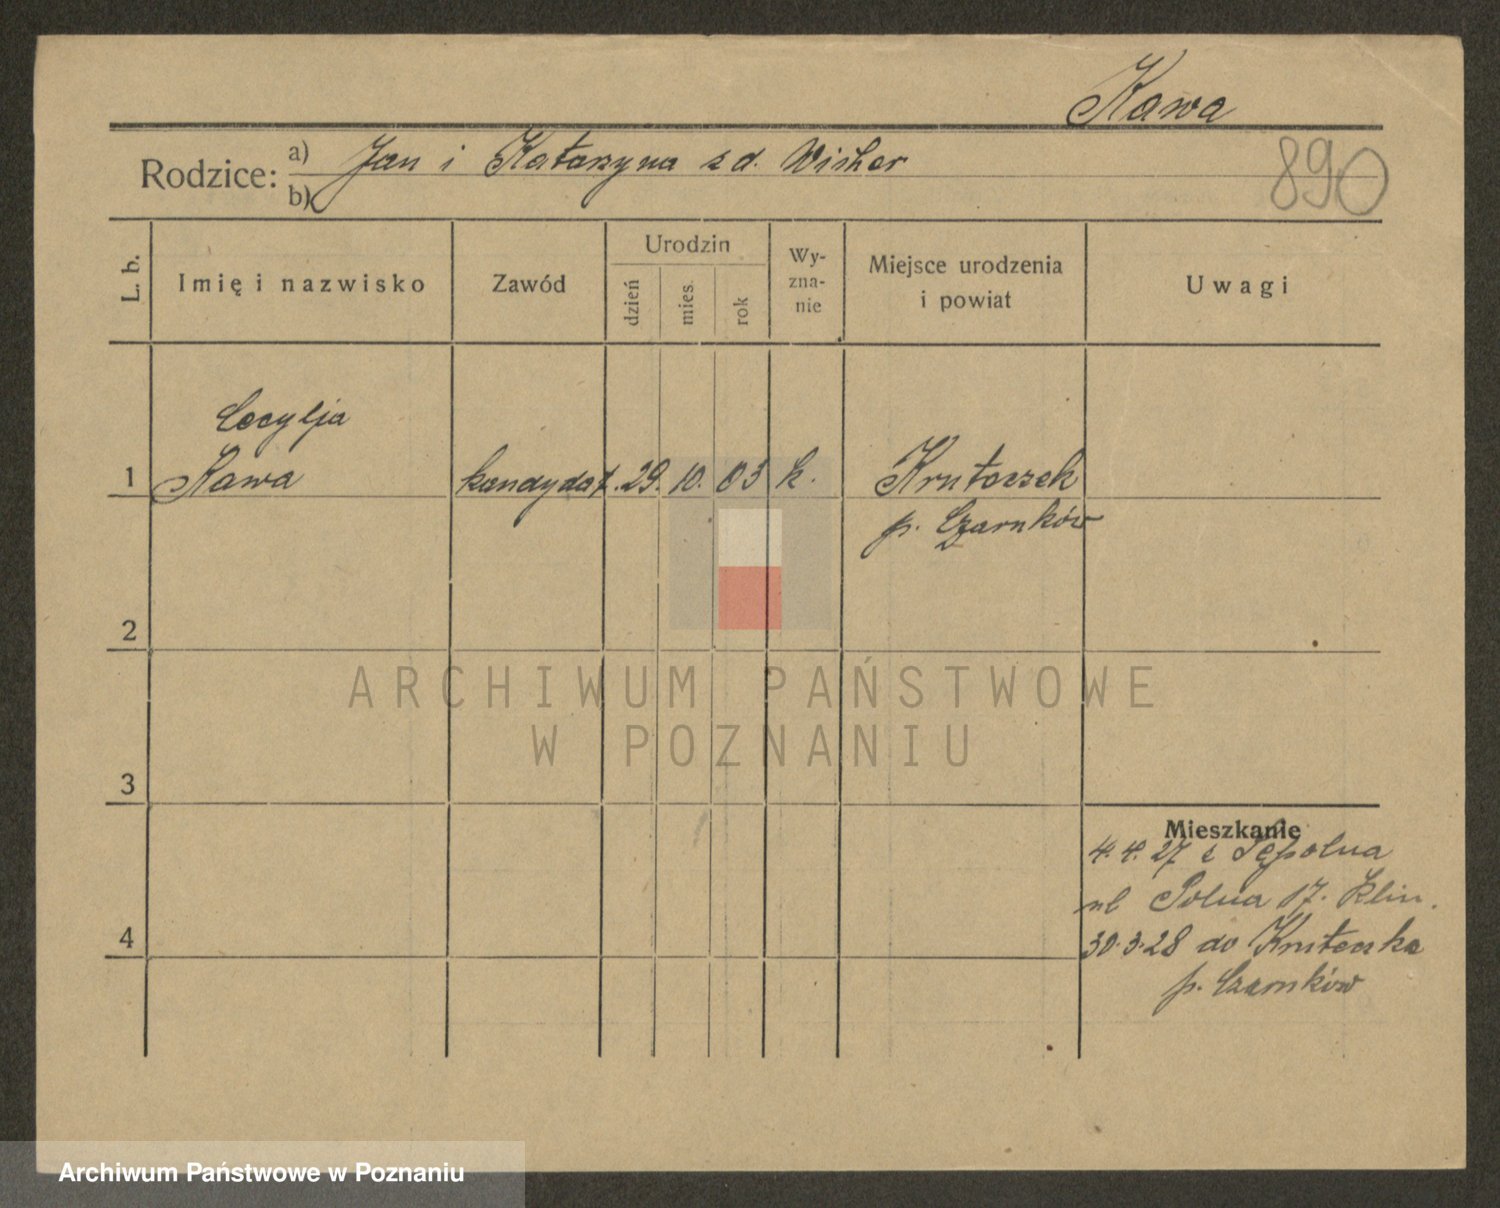 Kawa
Rodzice: a) Jan i Katarzyna z d. Wisher
b)
890
L. b.
Imię i nazwisko
Zawód
Urodzin
dzień
mies.
rok
Wy-
zna-
nie
Miejsce urodzenia
i powiat
Uwagi
Cecylja
1 Kawa kandydat. 29. 10. 03 k. Kruteczek
p. Czarnków
2
ARCHIWUM PAŃSTWOWE
W POZNANIU
3
Mieszkanie
4. 4. 27 z Sępolna
ul Polna 17. Klin.
4 30.3.28 do Kruteczka
p. Czarnków
Archiwum Państwowe w Poznaniu